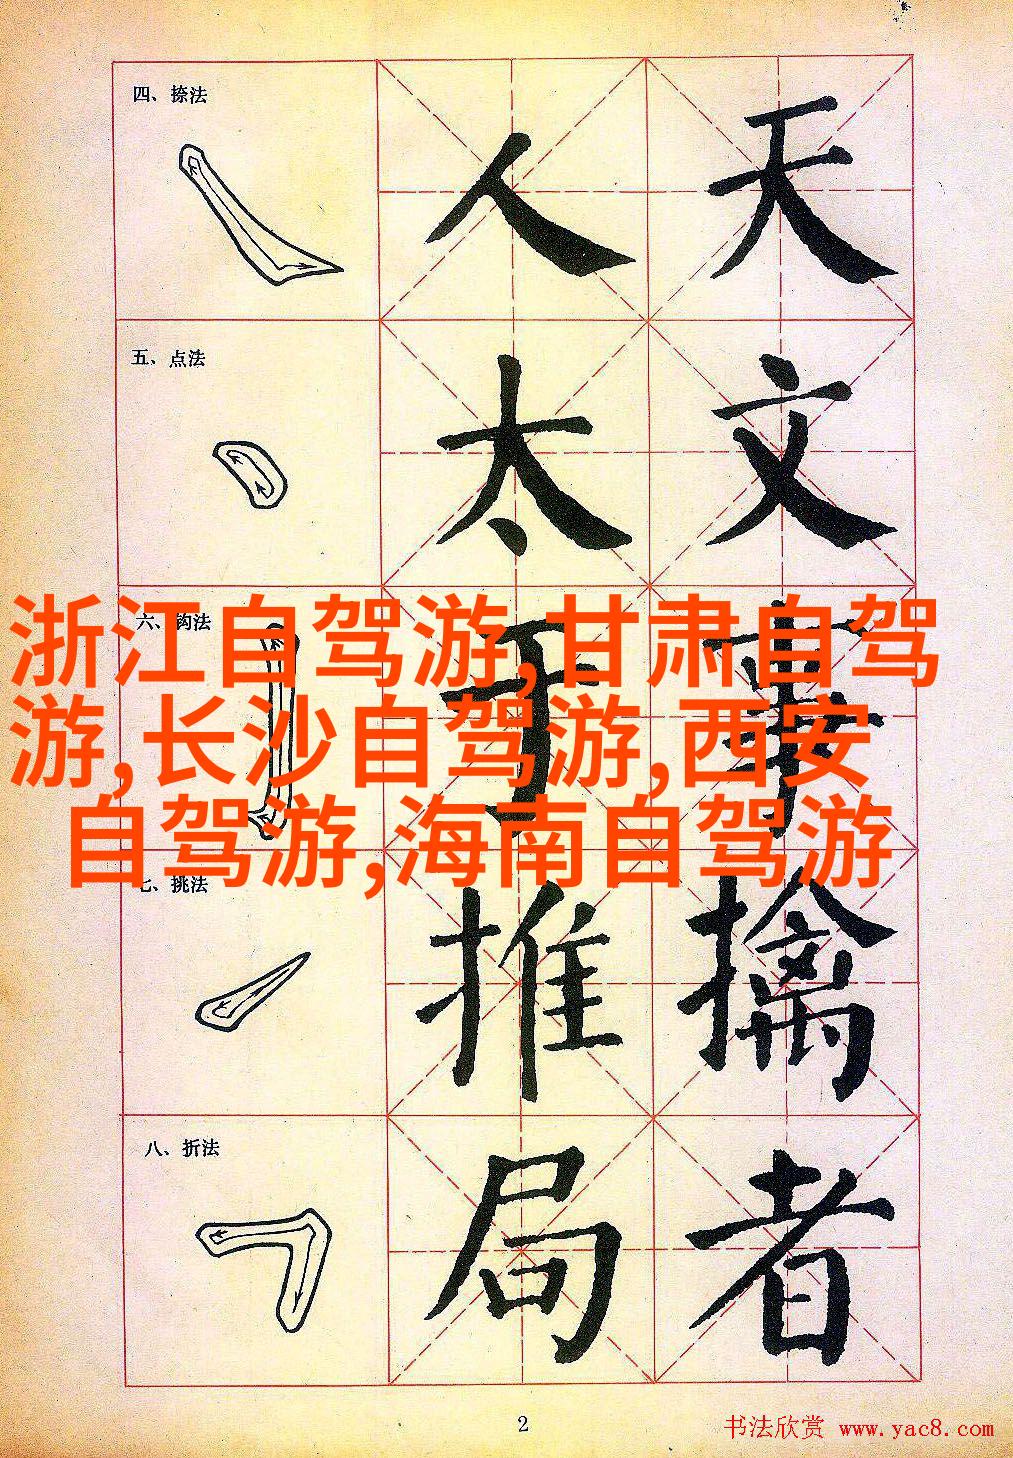 四、捺法
人 天
五、点法
太 文
六、钩法
于 事
浙江自驾游,甘肃自驾
游,长沙自驾游,西安
自驾游,海南自驾游
七、挑法
推 擒
八、折法
局 者
2
书法欣赏 www.yac8.com